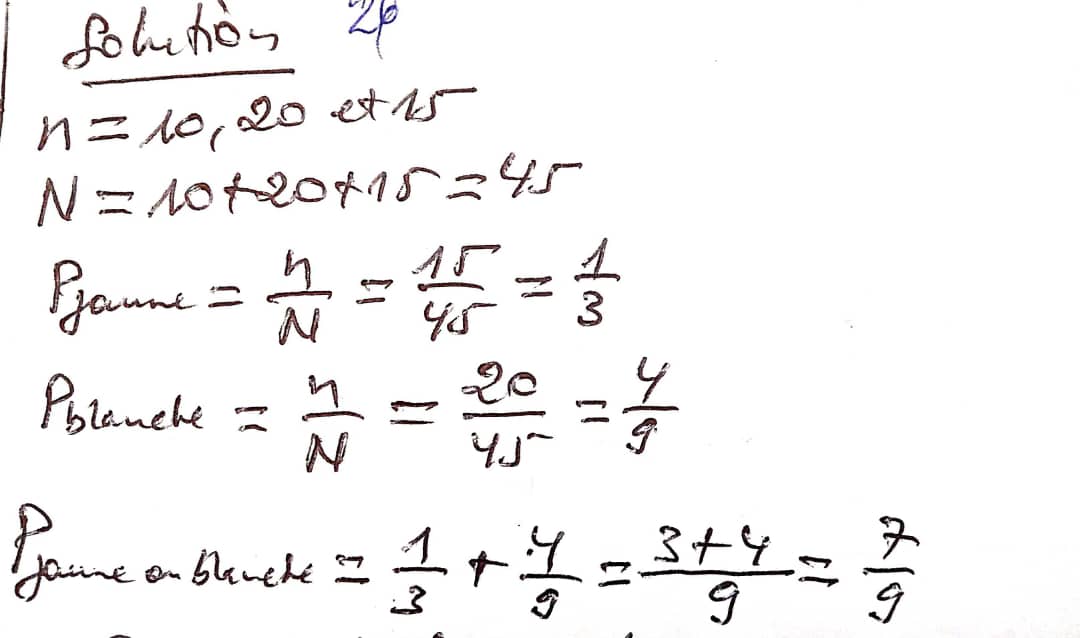 Solution 26
n = 10, 20 et 15
N = 10+20+15 = 45
Pjaune = n/N = 15/45 = 1/3
Pblanche = n/N = 20/45 = 4/9
Pjaune ou blanche = 1/3 + 4/9 = 3+4/9 = 7/9